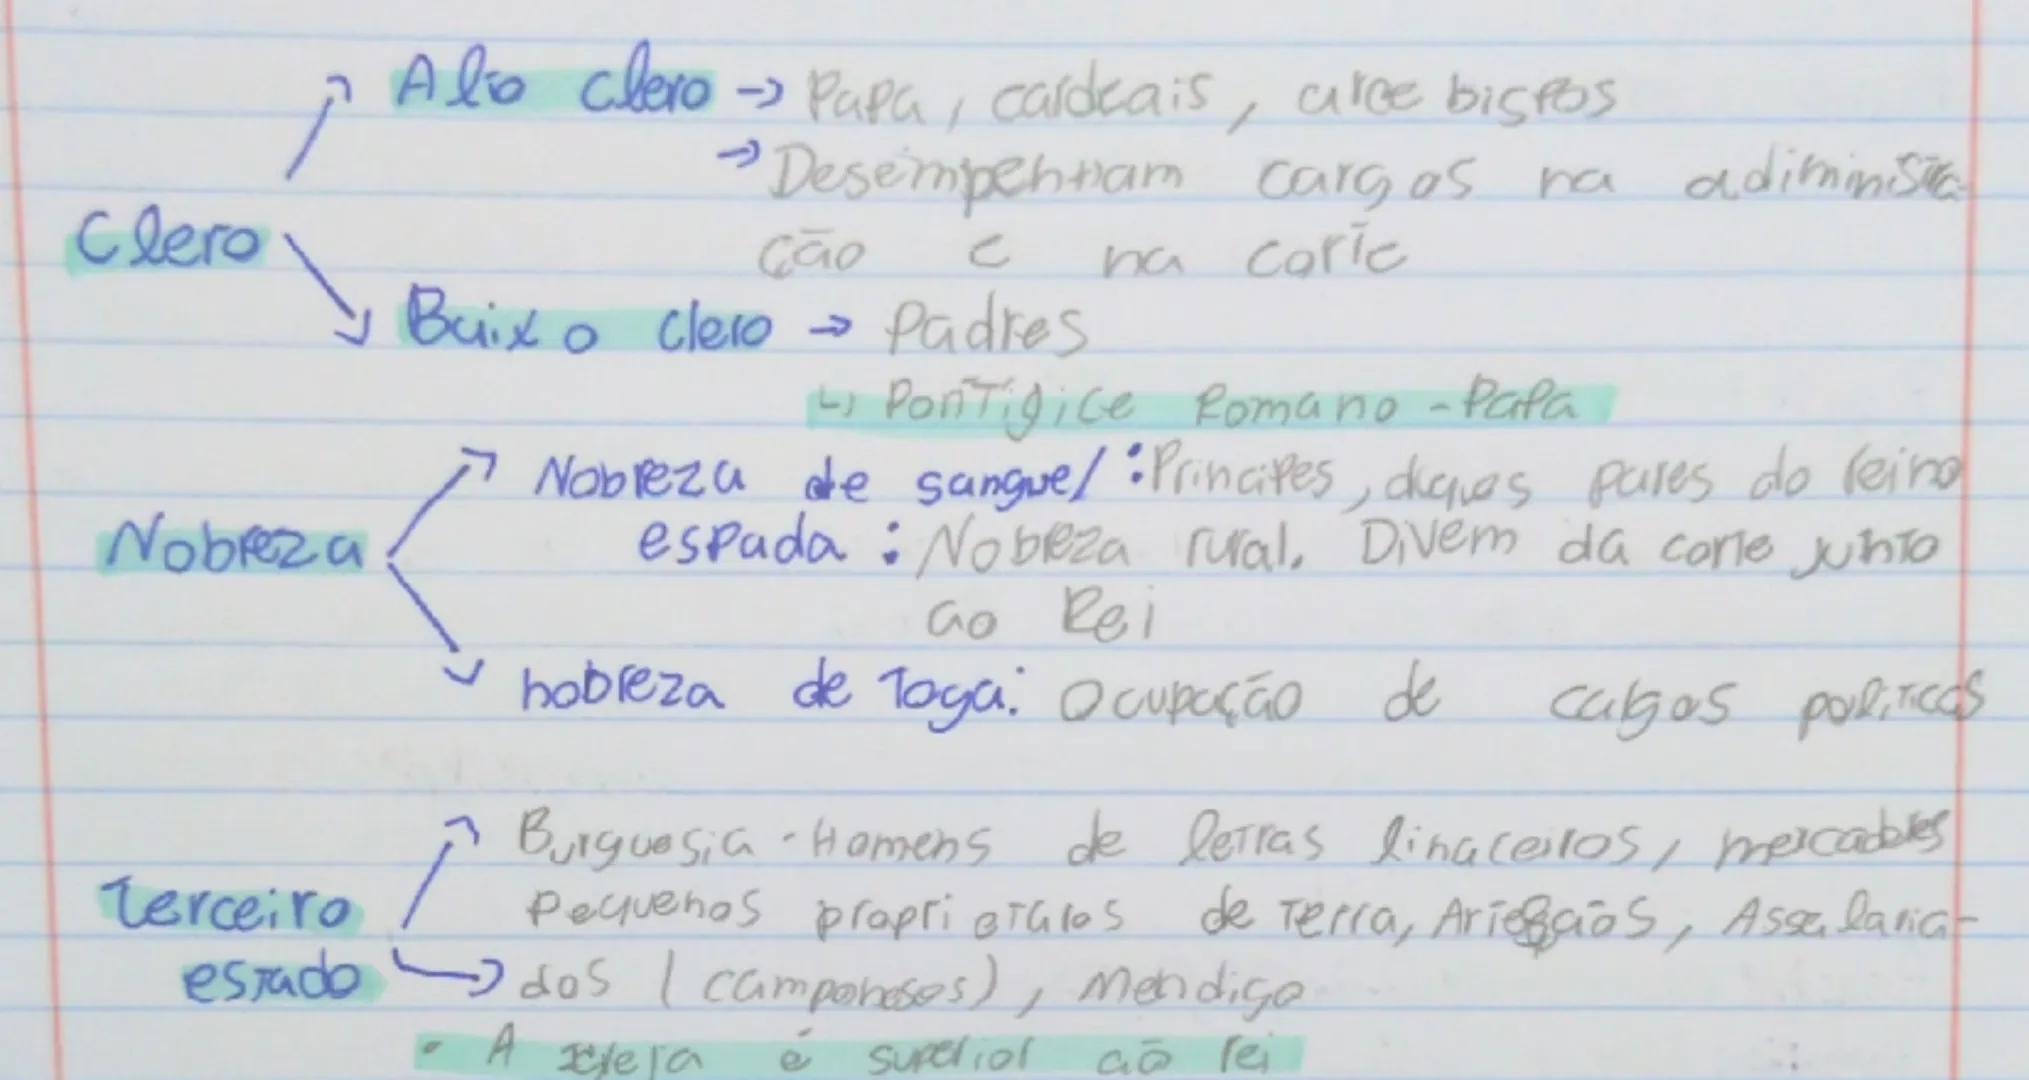 Alto clero → Papa, cardeais, arce bispos
→ Desempenham cargos na adiministra-
ção e na corte
Clero
Baixo clero → Padres
↳ Pontifice Romano - Papa
Nobreza de sangue/ : Principes, duques pares do reino
Nobreza espada : Nobreza rural. Divem da corte junto
ao Rei
nobreza de Toga: Ocupação de cargos politicos
Burguesia - Homens de letras linaceiros, mercadores
Terceiro Pequenos proprietários de Terra, Artesãos, Assalaria-
estado dos (camponeses), Mendigo
• A Igreja é superior ao rei